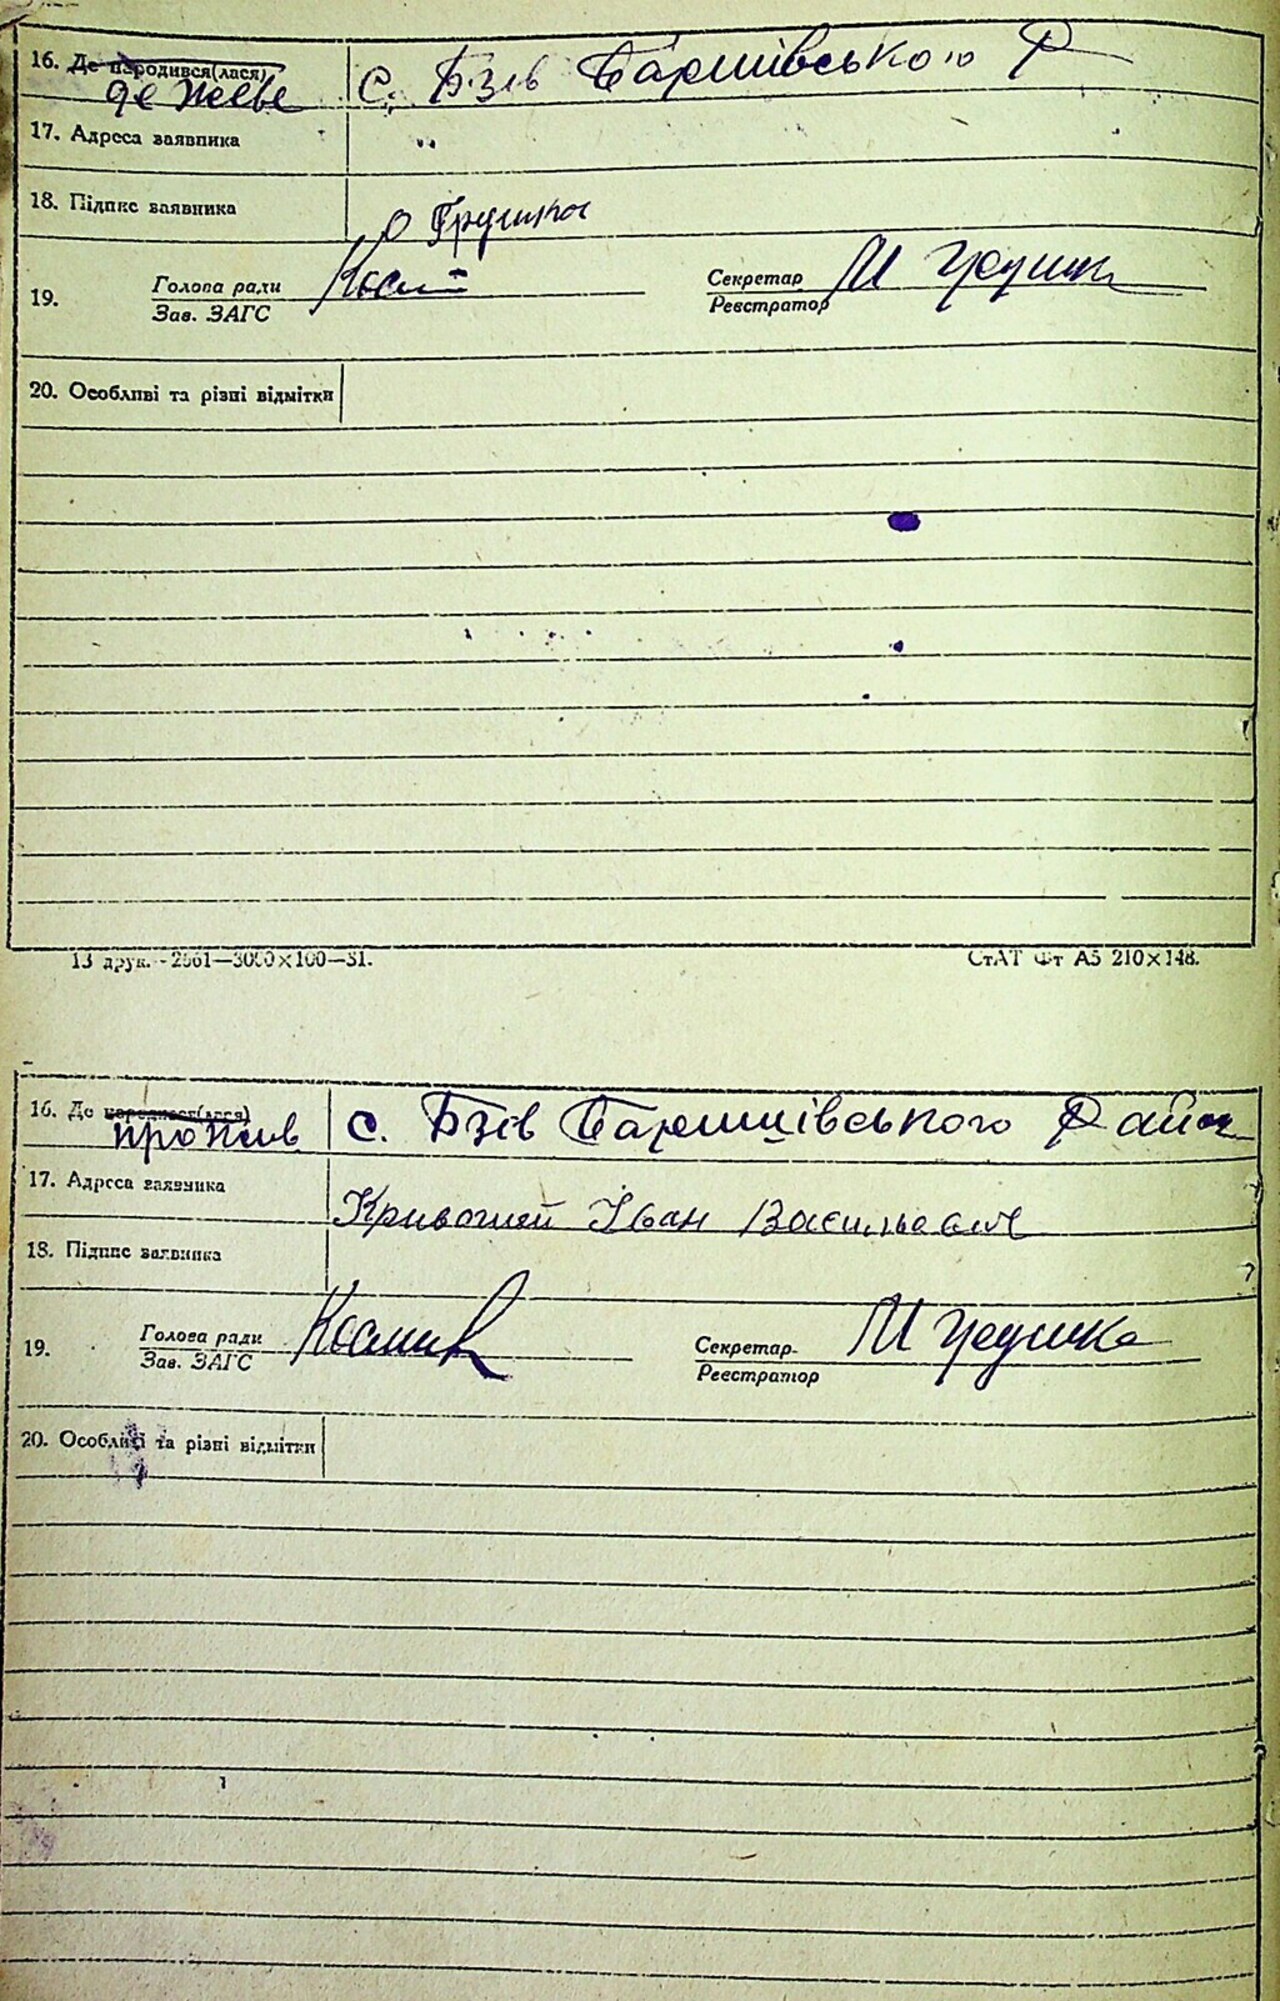 16. Де народився(лася) с. Бзів Баришівського Р
де живе
17. Адреса заявника
18. Підпис заявника
О Грушка
Голова ради Секретар М
19.
Зав. ЗАГС Реєстратор
20. Особливі та різні відмітки
13 друк. - 2561—3000×100—31. СтАТ Фт А5 210×148.
16. Де народився(лася) с. Бзів Баришівського Район
прожив
17. Адреса заявника
Кривошей Іван Васильович
18. Підпис заявника
Голова ради Секретар М
19.
Зав. ЗАГС Реєстратор
20. Особливі та різні відмітки